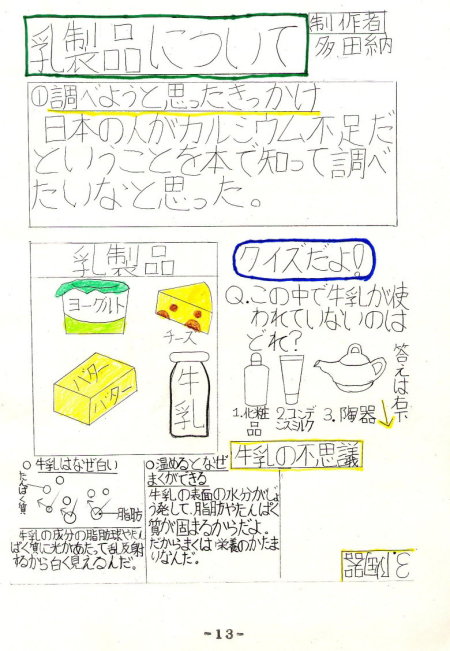 乳製品について
制作者
多田納
①調べようと思ったきっかけ
日本の人がカルシウム不足だ
ということを本で知って調べ
たいなと思った。
乳製品
ヨーグルト
チーズ
バター
バター
牛乳
クイズだよ!
Q.この中で牛乳が使
われていないのは
どれ?
1.化粧
品
2.コンデ
ンスミルク
3.陶器
答えは右下
牛乳の不思議
○牛乳はなぜ白い
たんぱく質
脂肪
牛乳の成分の脂肪球やたん
ぱく質に光があたって乱反射
するから白く見えるんだ。
○温めるとなぜ
まくができる
牛乳の表面の水分がじょ
う発して、脂肪やたんぱく
質が固まるからだよ。
だからまくは栄養のかたま
りなんだ。
3.陶器
-13-